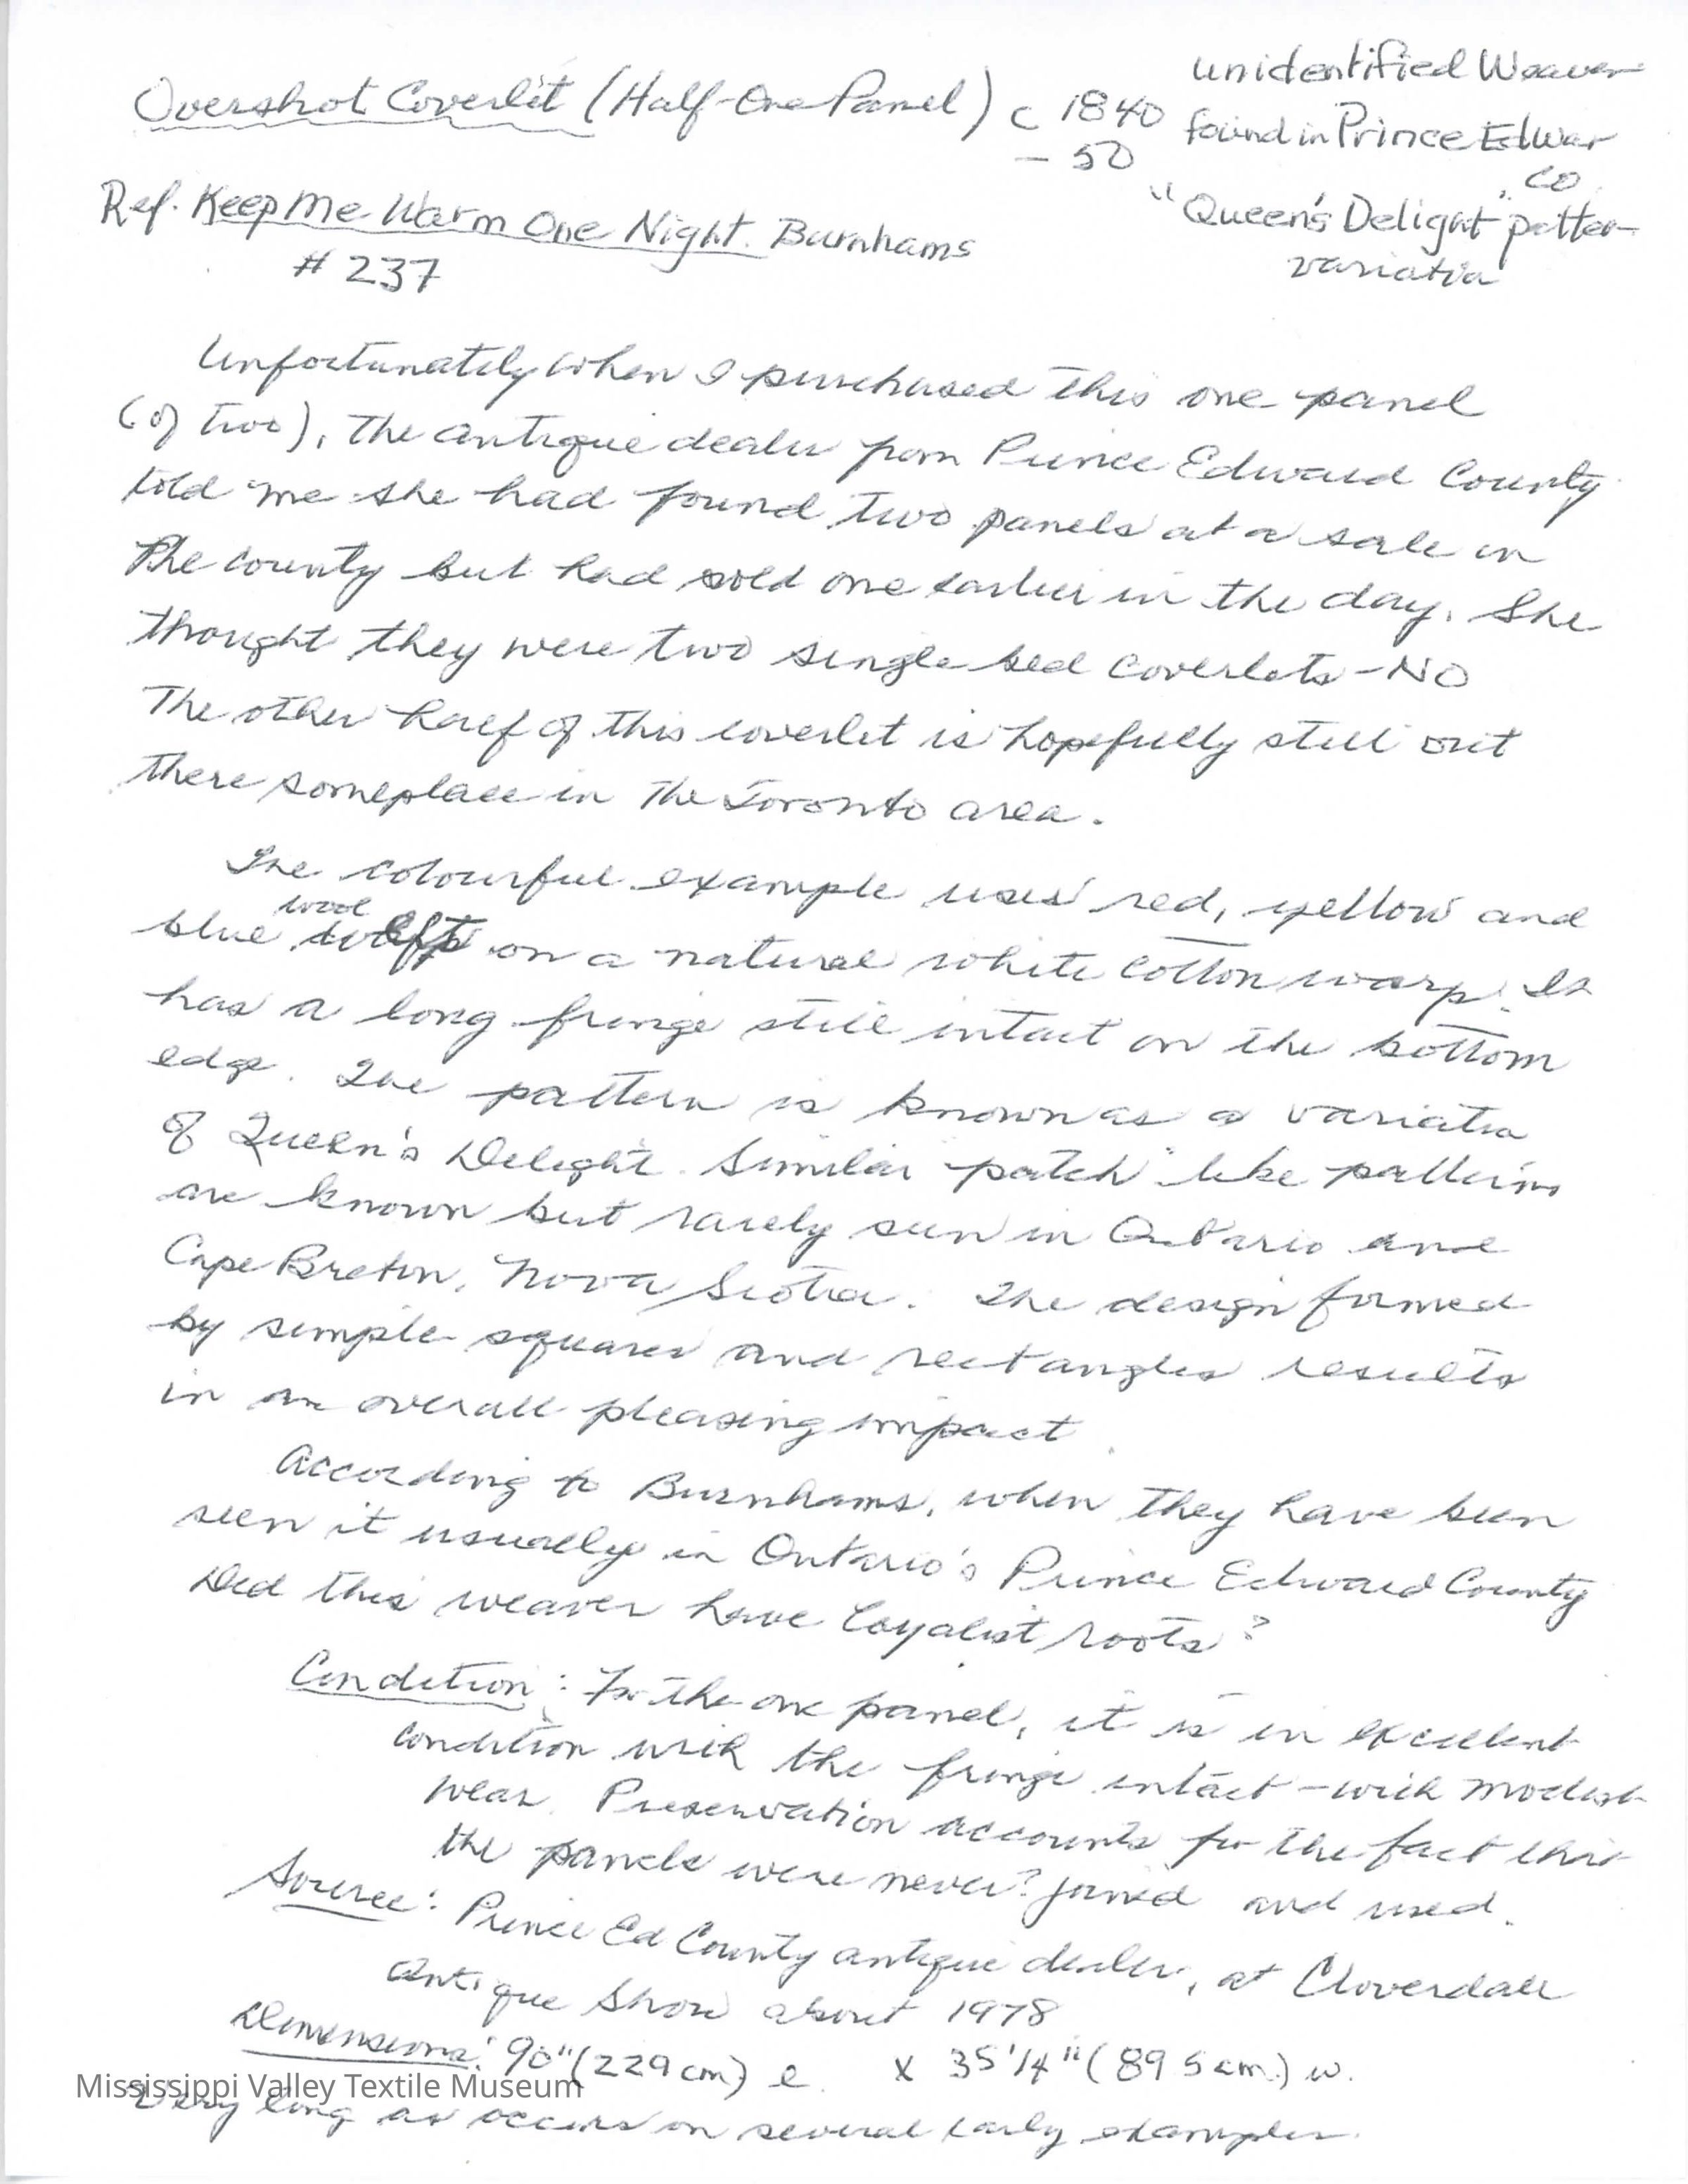 Overshot Coverlit (Half-One Panel) c 1840
- 50
unidentified Weaver
found in Prince Edwar
Co.
"Queen's Delight" patter
variatia
Ref. Keep Me Warm One Night. Burnhams
# 237
Unfortunately when I purchased this one panel
(of two), the antique dealer from Prince Edward County
told me she had found two panels at a sale in
the county but had sold one earlier in the day. She
thought they were two single bed coverlets - NO
The other half of this coverlet is hopefully still out
there someplace in the Toronto area.
The colourful example uses red, yellow and
blue wool wefts on a natural white cotton warp. It
has a long fringe still intact on the bottom
edge. The pattern is known as a variation
of Queen's Delight. Similar "patch" like patterns
are known but rarely seen in Ontario and
Cape Breton, Nova Scotia. The design formed
by simple squares and rectangles results
in an overall pleasing impact.
According to Burnhams, when they have been
seen it usually in Ontario's Prince Edward County
Did this weaver have Loyalist roots?
Condition: For the one panel, it is in excellent
condition with the fringe intact - with modest
wear. Preservation accounts for the fact that
the panels were never? joined and used.
Source: Prince Ed County antique dealer, at Cloverdale
Antique Show about 1978
Dimensions: 90" (229 cm) l. x 35 1/4" (89 5 cm.) w.
Mississippi Valley Textile Museum
Very long as occurs on several early examples.